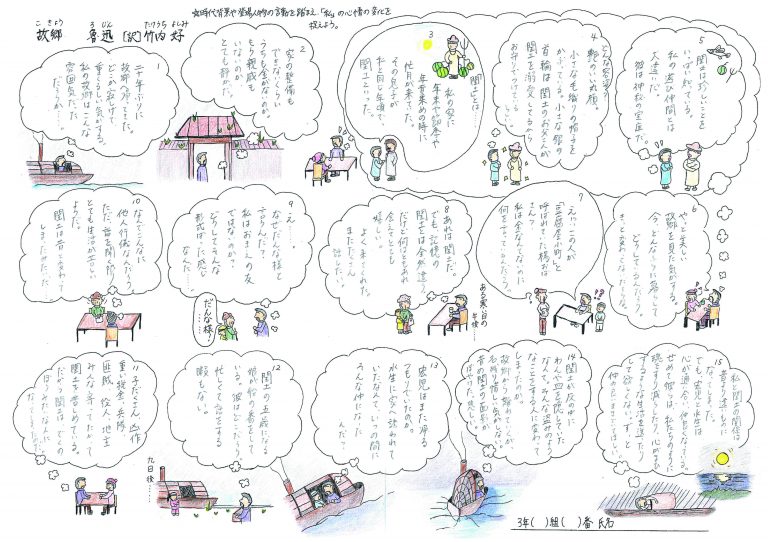 故郷
こきょう
魯迅
ろじん
[訳]竹内 好
たけうち よしみ
※時代背景や登場人物の言動を踏まえ、「私」の心情の変化を
捉えよう。
1
二十年ぶりに
故郷へ帰ってきた。
私の故郷はこんな
2
家の整備も
できなくらい
うちも金がないのか。
もう親戚も
いないのか。
とても静かだ。
3
閏土とは
私の家に
年末や節季や
年貢集めの時に
他月が来てた。
その息子が
私と同じ年頃で、
閏土といった。
4
どんな容姿?
艶のいい丸顔
小さな毛織りの帽子を
かぶっている。小さな銀の
首輪は閏土のお父さんが
閏土を溺愛してるから、
お弁でつけている
5
閏土は珍しいことを
いっぱい知ってる。
私の遊び仲間とは
大違いだ。
彼は神秘の宝庫だ。
6
やっと美しい
故郷を見た気がする。
今、どんなふうに暮らして
どうしてるんだろう。
きっと変わらないだろうな。
7
えっ!?この人が
「豆腐屋小町」と
呼ばれてた楊おばさん…。
私は金なんてないのに
何を言っているんだろう。
8
あれは閏土だ。
でも、記憶の
閏土とは全然違う。
だけど何はともあれ
会えてとても
嬉しい。
よく来てくれた。
またたくさん
話したい。
ある寒い日の
午後
9
え……?
なぜだんな様と
言うんだ?
私はおまえの友
ではないのか?
どうしてそんな
形式ばった感じ
なんだ……
だんな様!……
10
なんでこんなに
他人行儀なんだろう
ただ、話を聞く限り
とても生活が苦しい
ようだ。
閏土は昔と変わって
しまったみたいだ。
11
子だくさん 凶作
重い税金、兵隊
匪賊、役人、地主
みんな寄ってたかって
閏土を苦しめている。
だから閏土は
12
閏土は五歳になる
娘が船の番をして
いる。彼はどうだろう。
忙しくて話をする
暇もない。
九日後……
13
宏児はまた帰る
つもりでいたのか。
水生に家へ誘われて
いたなんて、いつの間に
そんな仲になった
んだっ
14
閏土が灰の中に
わんや皿を隠していた
なんて。そんな盗みのよう
なことをする人に変わって
しまったのか。
故郷から離れていくが
名残り惜しい気がしない。
昔の閏土の面影が
ぼやけた。悲しい。
15
私と閏土の関係は
昔とより遠いもの
なってしまった。
でも、宏児と水生は
心が通う仲良しなっている。
せめて彼らは、私たちのように
心がまひ
するような生活を送ったり
して欲しくない。ずっと
仲の良いままでいてほしい。
3年( )組( )番 氏名